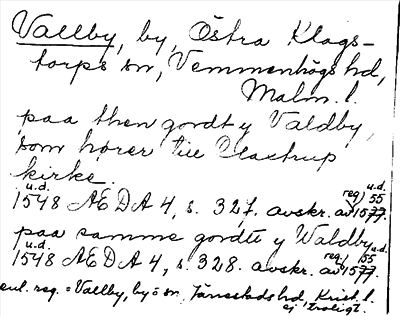 Vallby, by, Östra Klags-
torps sn, Vemmenhögs hd,
Malm. l.
paa then gordt y Valdby,
som hører till Clactrup
kirke.
u.d. reg) u.d. 55
1548 AEDA 4, s. 327. avskr. av 1577.
paa samme gordte y Waldby
u.d. reg. u.d. 55
1548 AEDA 4, s. 328. avskr. av 1577.
enl. reg. = Vallby, by o sn, Järrestads hd, Krist. l.
ej troligt.